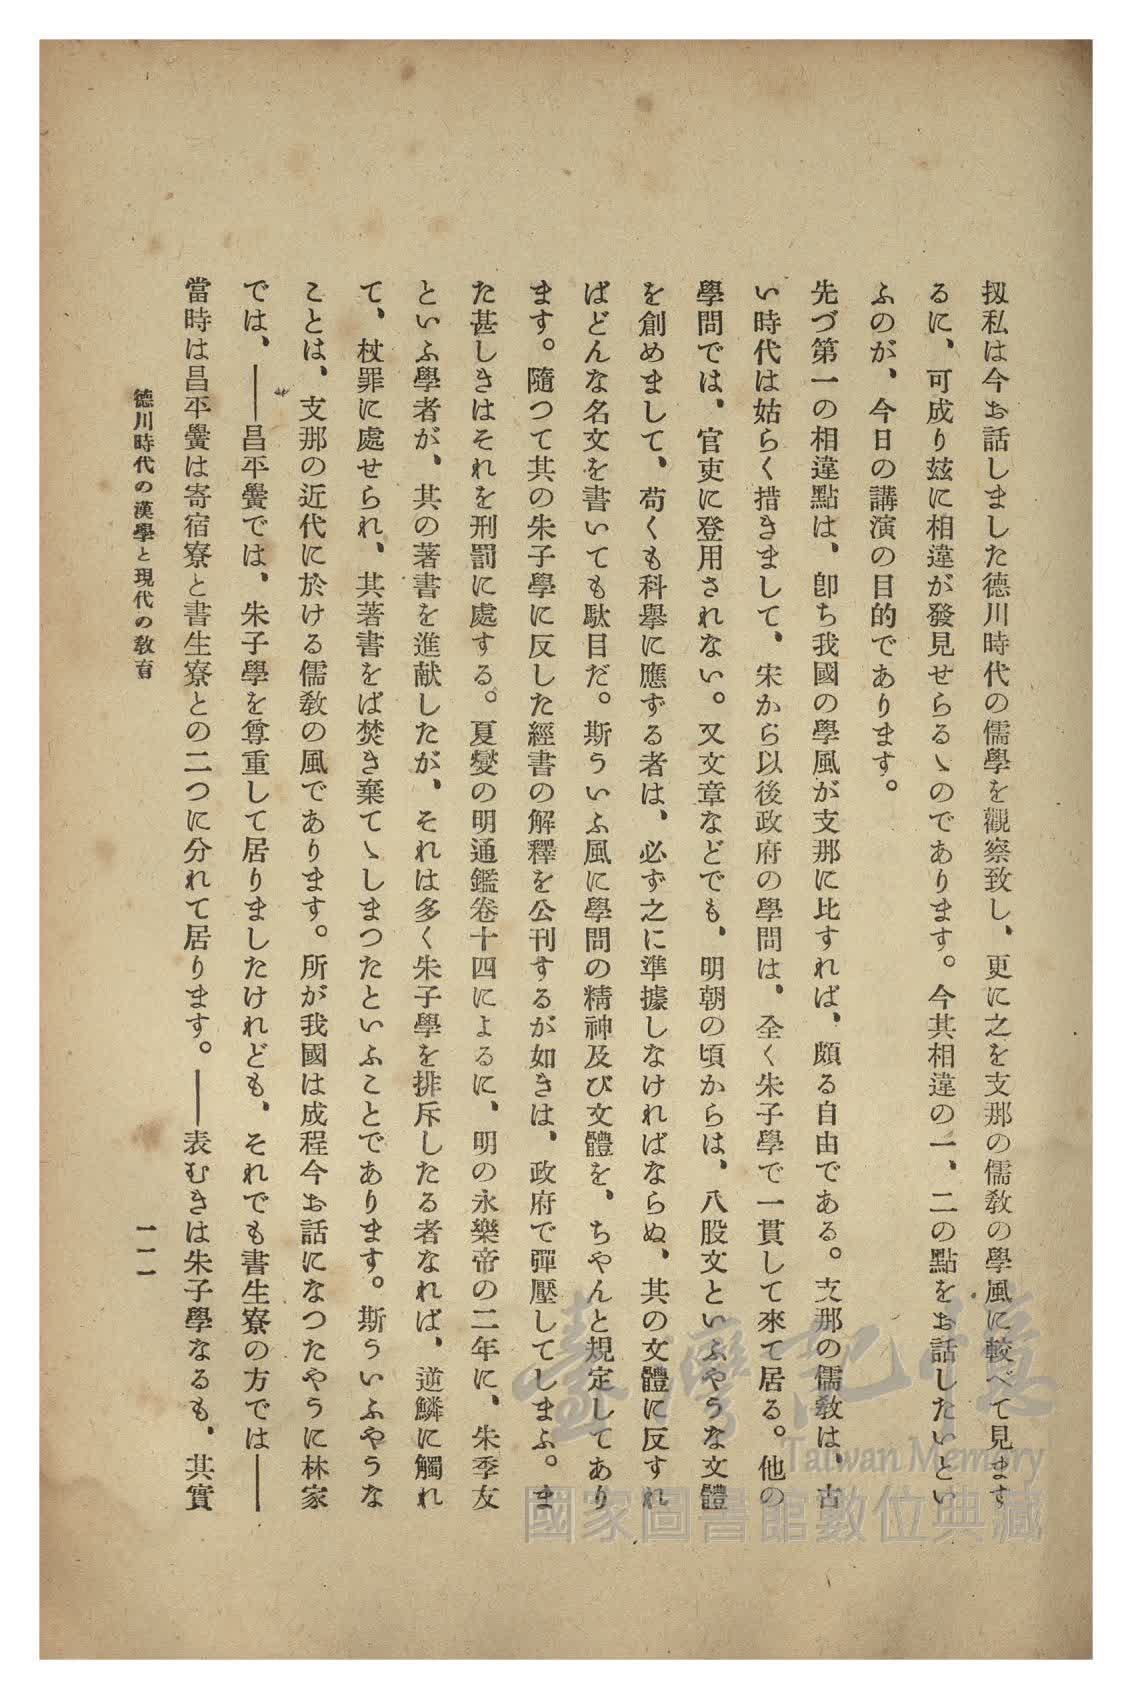 扨私は今お話しました德川時代の儒學を觀察致し、更に之を支那の儒敎の學風に較べて見ます
るに、可成り玆に相違が發見せらるゝのであります。今其相違の一、二の點をお話したいとい
ふのが、今日の講演の目的であります。
先づ第一の相違點は、卽ち我國の學風が支那に比すれば、頗る自由である。支那の儒敎は、古
い時代は姑らく措きまして、宋から以後政府の學問は、全く朱子學で一貫して來て居る。他の
學問では、官吏に登用されない。又文章などでも、明朝の頃からは、八股文といふやうな文體
を創めまして、苟くも科擧に應ずる者は、必ず之に準據しなければならぬ、其の文體に反すれ
ばどんな名文を書いても駄目だ。斯ういふ風に學問の精神及び文體を、ちやんと規定してあり
ます。隨つて其の朱子學に反した經書の解釋を公刊するが如きは、政府で彈壓してしまふ。ま
た甚しきはそれを刑罰に處する。夏燮の明通鑑卷十四によるに、明の永樂帝の二年に、朱季友
といふ學者が、其の著書を進献したが、それは多く朱子學を排斥したる者なれば、逆鱗に觸れ
て、杖罪に處せられ、其著書をば焚き棄てゝしまつたといふことであります。斯ういふやうな
ことは、支那の近代に於ける儒敎の風であります。所が我國は成程今お話になつたやうに林家
では、――昌平黌では、朱子學を尊重して居りましたけれども、それでも書生寮の方では――
當時は昌平黌は寄宿寮と書生寮との二つに分れて居ります。――表むきは朱子學なるも、其實
德川時代の漢學と現代の敎育
一一一
臺灣記憶
Taiwan Memory
國家圖書館數位典藏